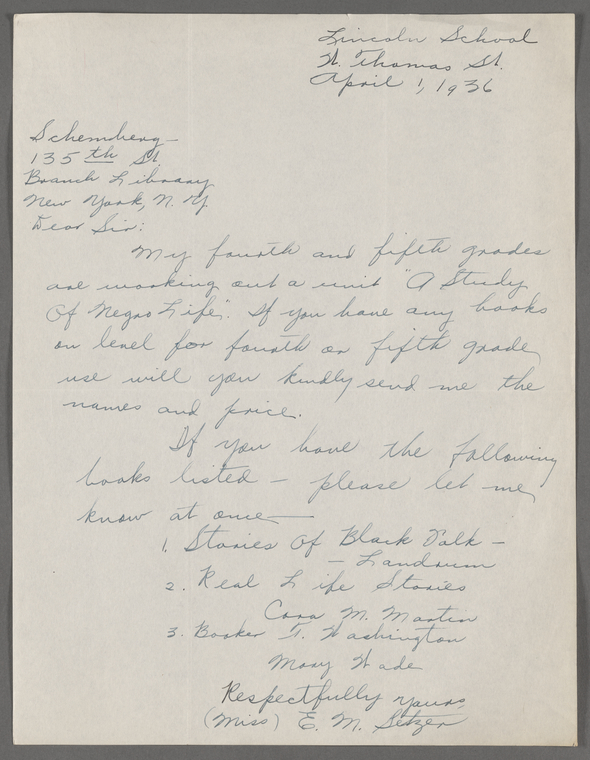 Lincoln School
W. Thomas St.
April 1, 1936
Schemberg—
135th St.
Branch Library
New York, N. Y.
Dear Sir:
My fourth and fifth grades
are working out a unit "A Study
Of Negro Life". If you have any books
on level for fourth or fifth grade
use will you kindly send me the
names and price.
If you have the following
books listed — please let me
know at once—
1. Stories Of Black Folk —
— Landrum
2. Real Life Stories
Cora M. Martin
3. Booker T. Washington
Mary Wade
Respectfully yours,
(Miss) E. M. Setzer